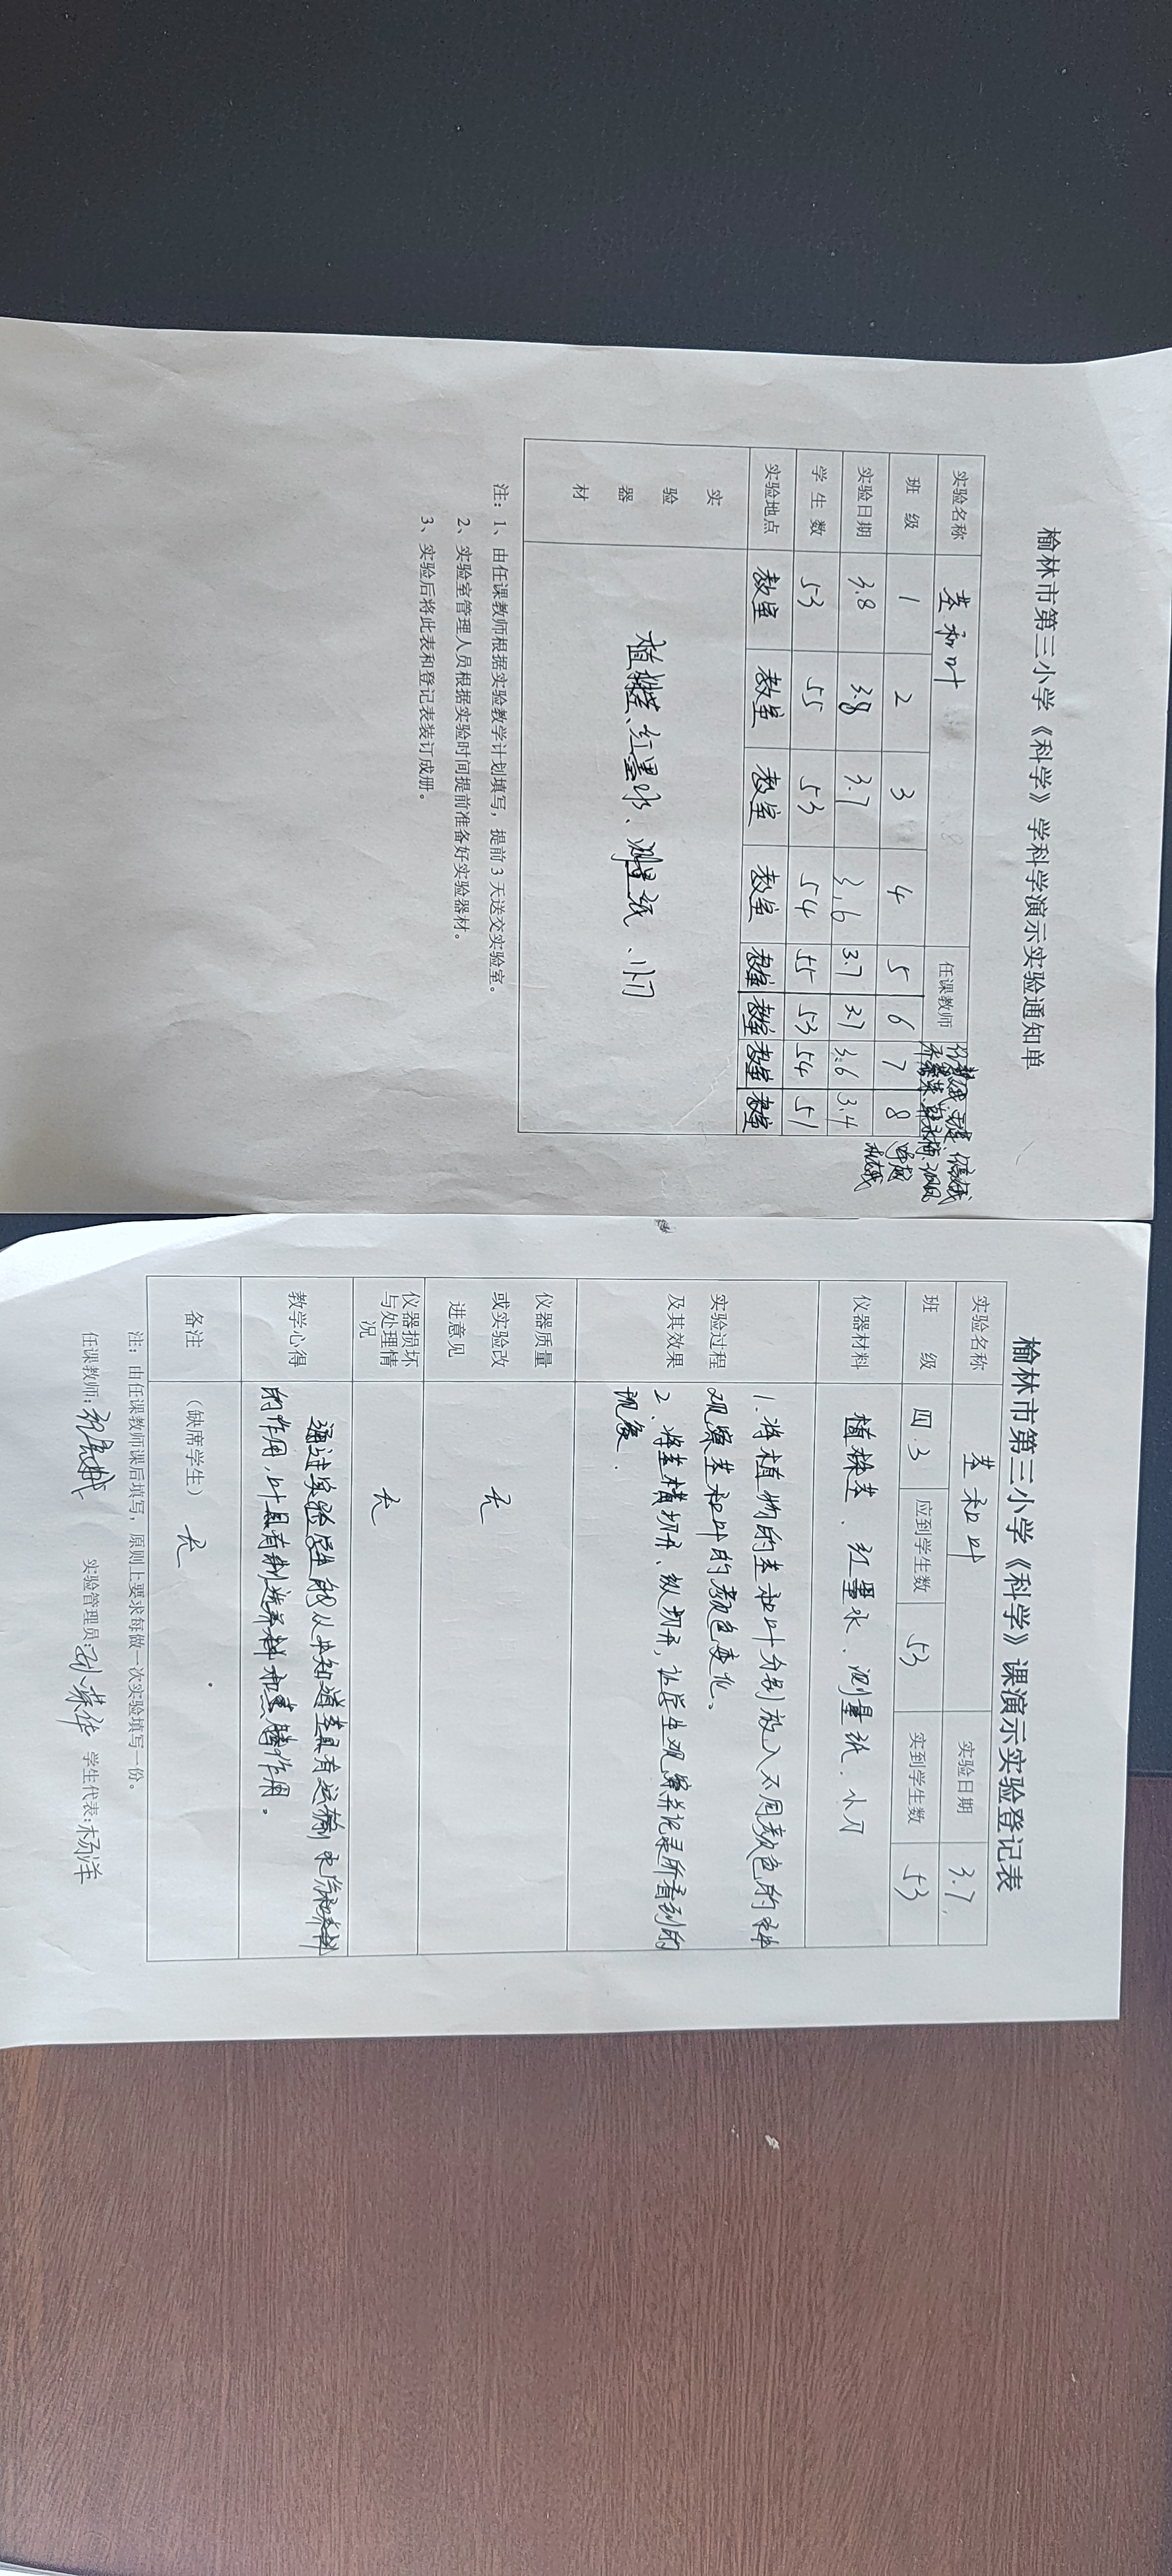 榆林市第三小学《科学》学科学演示实验通知单
实验名称 茎和叶 任课教师
班 级 1 2 3 4 5 6 7 8
实验日期 3.8 3.8 3.7 3.6 3.7 3.7 3.6 3.4
学 生 数 53 55 53 54 55 53 54 51
实验地点 教室 教室 教室 教室 教室 教室 教室 教室
实验器材 植株茎、红墨水、测量纸、小刀
注：1、由任课教师根据实验教学计划填写，提前3天送交实验室。
2、实验室管理人员根据实验时间提前准备好实验器材。
3、实验后将此表和登记表装订成册。
榆林市第三小学《科学》课演示实验登记表
实验名称 茎和叶 实验日期 3.7.
班 级 四.3 应到学生数 53 实到学生数 53
仪器材料 植株茎、红墨水、测量纸、小刀
实验过程及其效果
1.将植物的茎和叶分别放入不同颜色的水中
观察茎和叶的颜色变化。
2、将茎横切开、纵切开，让学生观察并记录所看到的
现象.
仪器质量或实验改进意见 无
仪器损坏与处理情况 无
教学心得
通过实验学生能从中知道茎具有运输水份和养料
的作用，叶具有制造养料和蒸腾作用。
备注 （缺席学生） 无
注：由任课教师课后填写，原则上要求每做一次实验填写一份。
任课教师: 实验管理员: 学生代表: